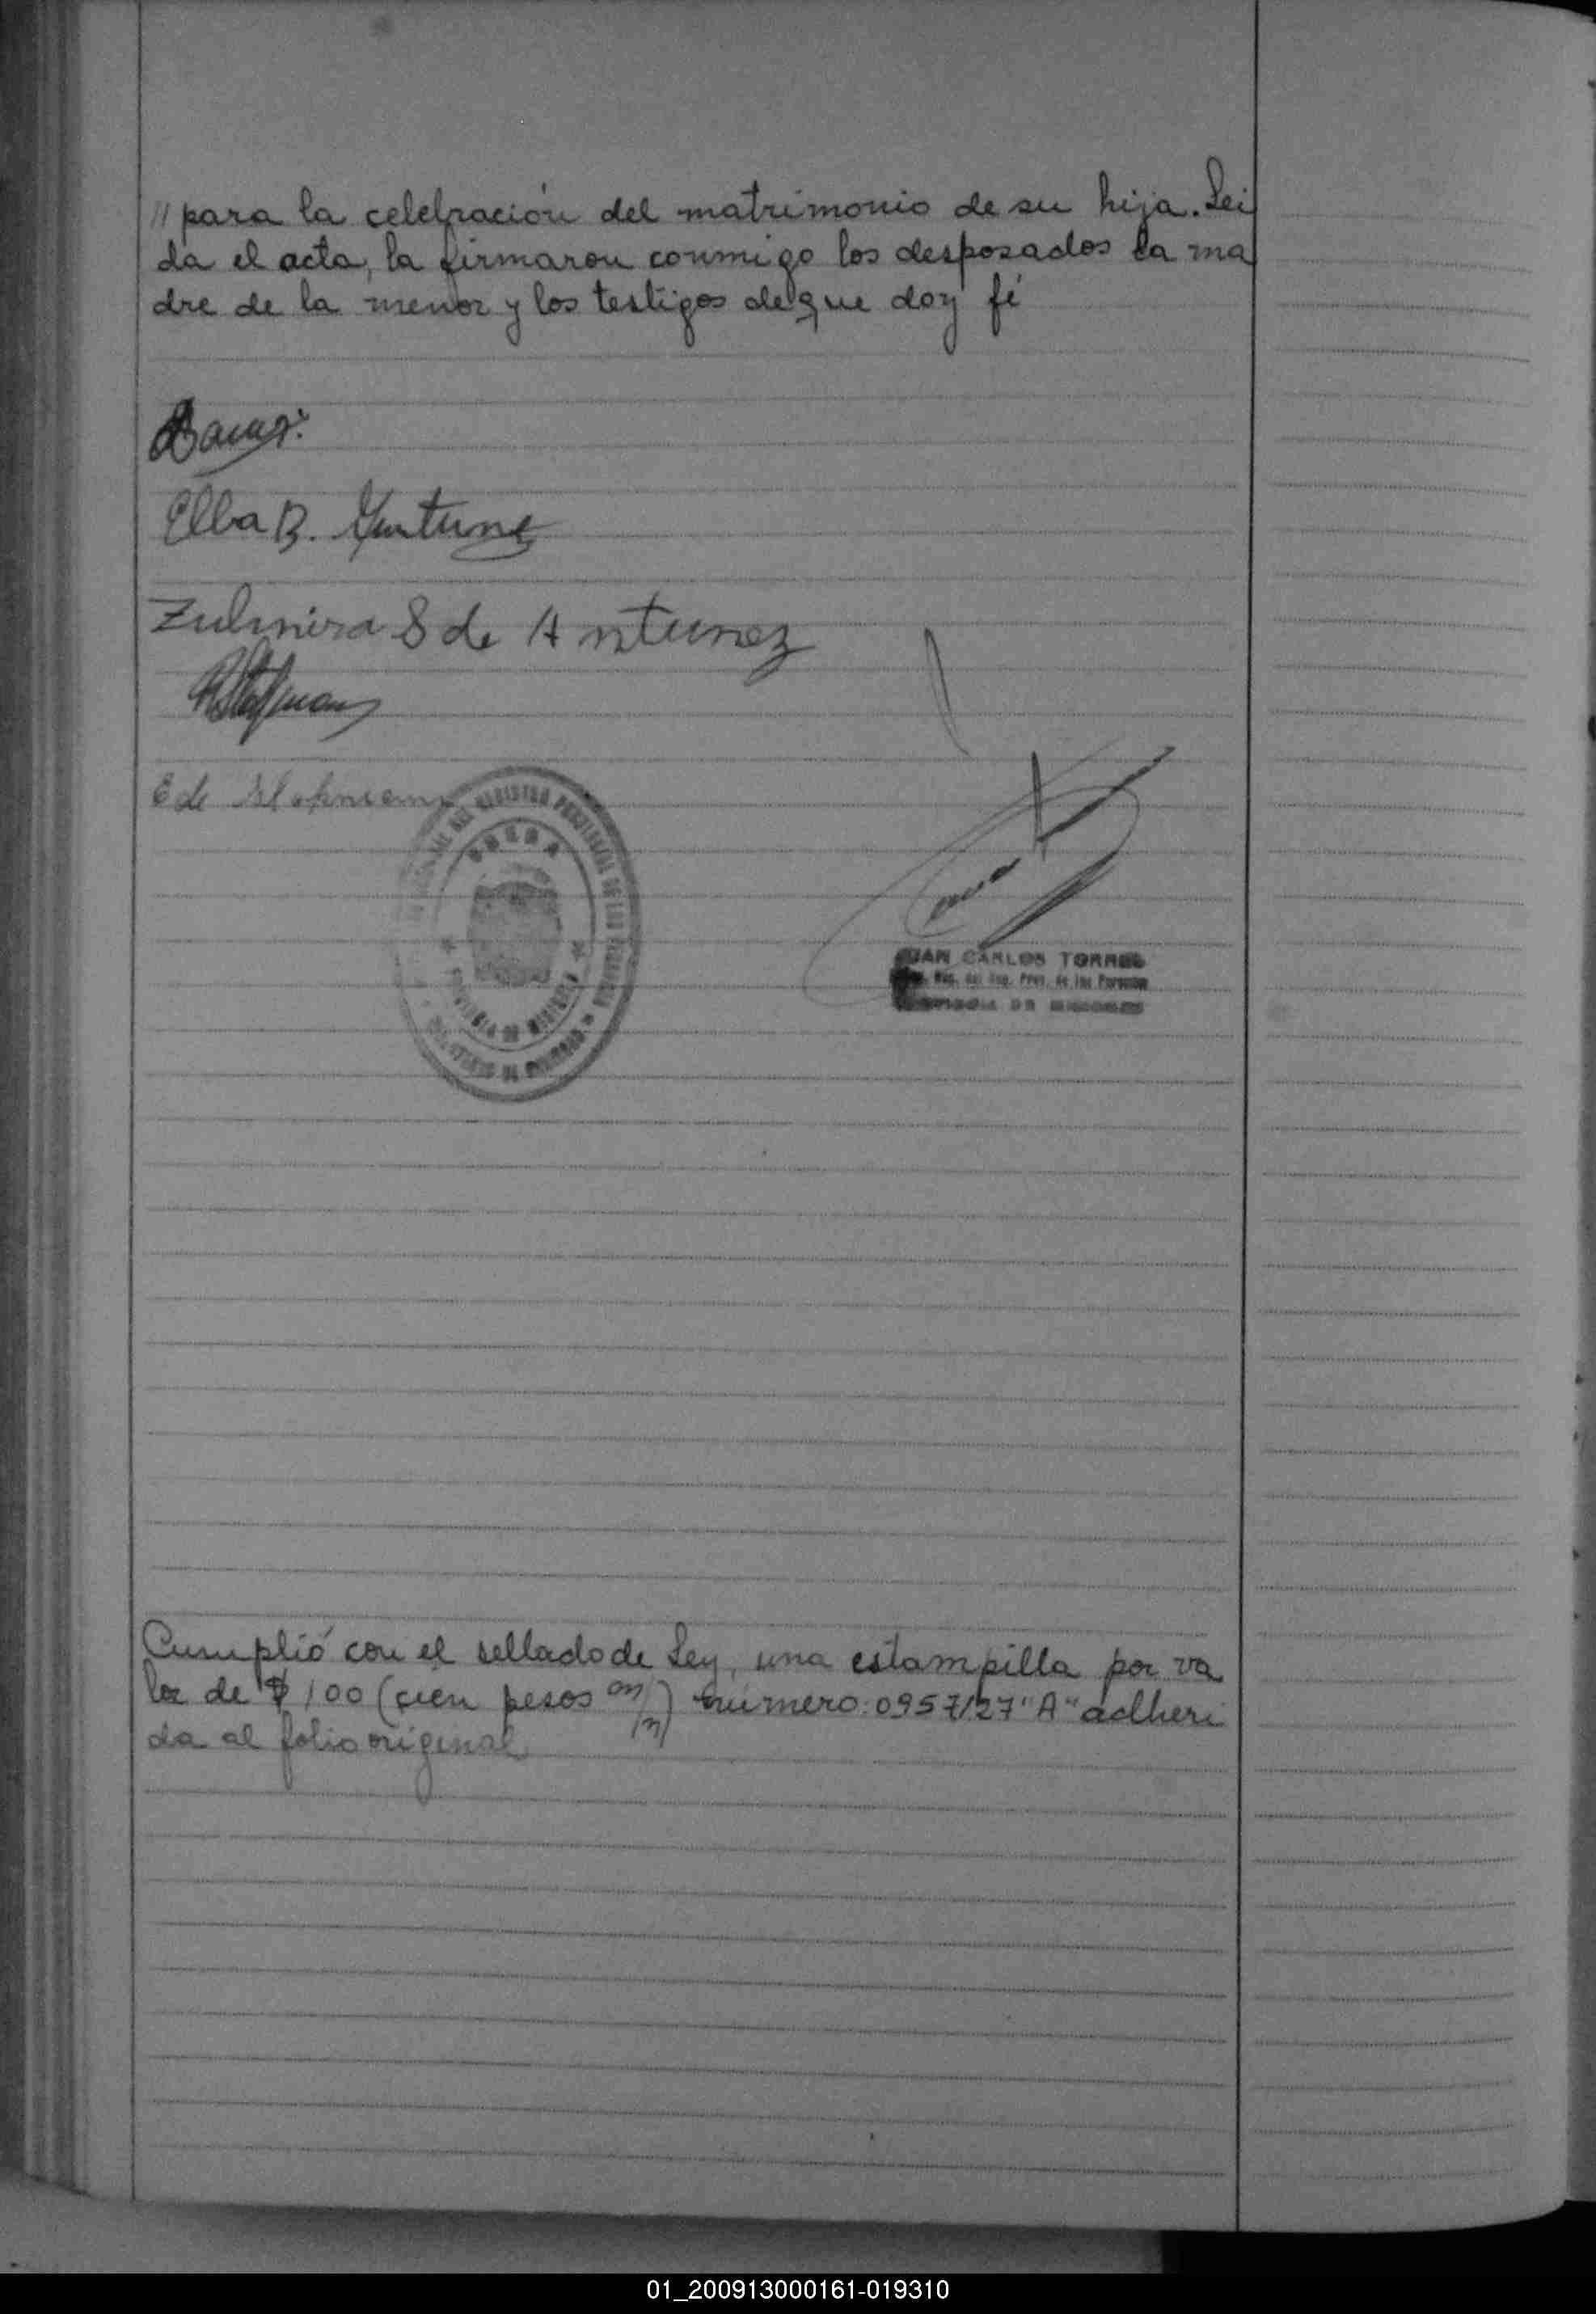 // para la celebración del matrimonio de su hija. Lei
da el acta, la firmaron conmigo los desposados la ma
dre de la menor y los testigos de que doy fé
Elba B. Antunez
Zulmira S de Antunez
E de
OBERA
JUAN CARLOS TORRES
Reg. Prov. de las Personas
PROVINCIA DE MISIONES
Cumplió con el sellado de Ley, una estampilla por va
lor de $ 100 (cien pesos m/n) número: 0957127 "A" adheri
da al folio original
01_200913000161-019310